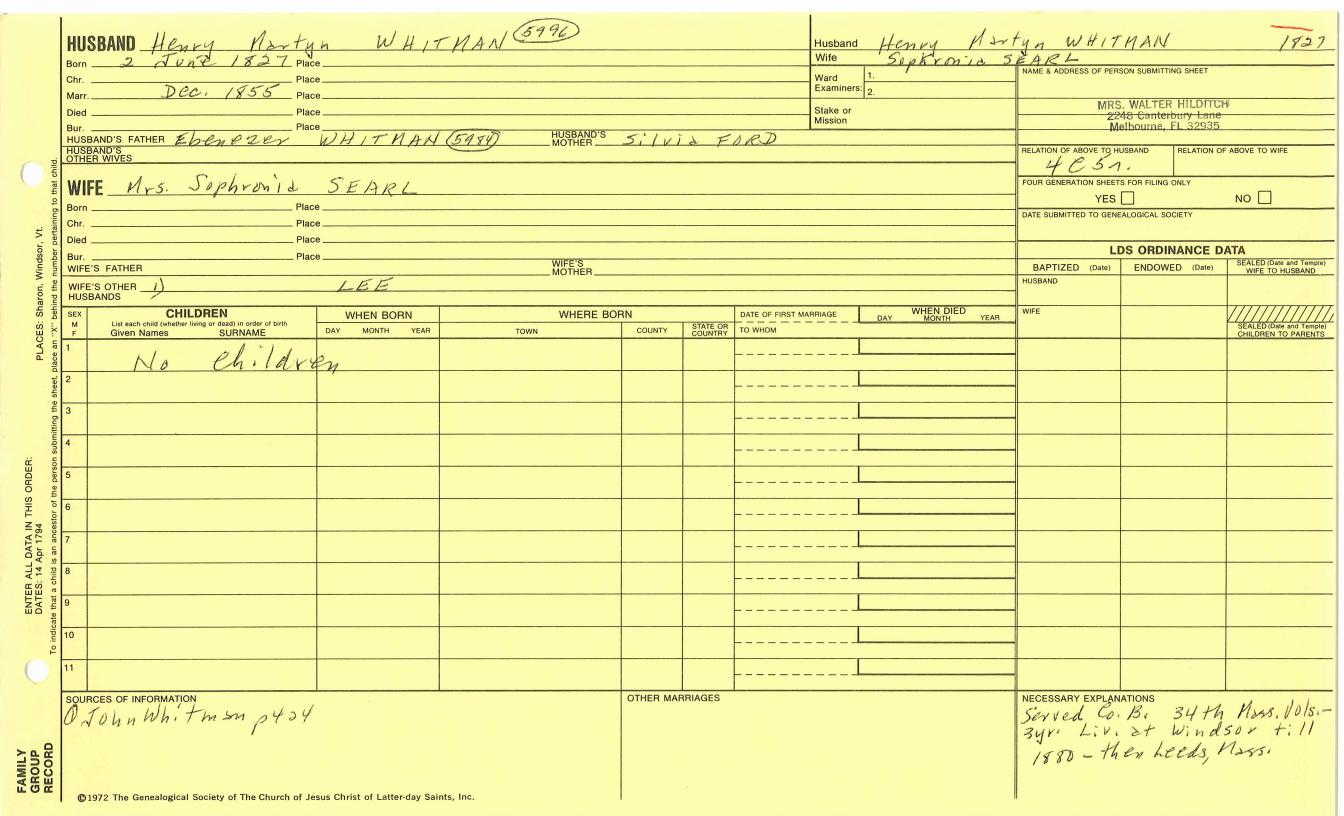 HUSBAND Henry Martyn WHITMAN (5996)
Born 2 June 1827 Place
Chr. Place
Marr. Dec. 1855 Place
Died Place
Bur. Place
HUSBAND'S FATHER Ebenezer WHITMAN (5984) HUSBAND'S MOTHER Silvia FORD
HUSBAND'S OTHER WIVES
WIFE Mrs. Sophronia SEARL
Born Place
Chr. Place
Died Place
Bur. Place
WIFE'S FATHER WIFE'S MOTHER
WIFE'S OTHER HUSBANDS 1) LEE
Husband Henry Martyn WHITMAN 1827
Wife Sophronia SEARL
Ward Examiners: 1.
2.
Stake or Mission
NAME & ADDRESS OF PERSON SUBMITTING SHEET
MRS. WALTER HILDITCH
2248 Canterbury Lane
Melbourne, FL 32935
RELATION OF ABOVE TO HUSBAND RELATION OF ABOVE TO WIFE
4C5r.
FOUR GENERATION SHEETS FOR FILING ONLY
YES NO
DATE SUBMITTED TO GENEALOGICAL SOCIETY
LDS ORDINANCE DATA
BAPTIZED (Date) ENDOWED (Date) SEALED (Date and Temple) WIFE TO HUSBAND
HUSBAND
WIFE
SEALED (Date and Temple) CHILDREN TO PARENTS
SEX M F
CHILDREN
List each child (whether living or dead) in order of birth
Given Names SURNAME
WHEN BORN
DAY MONTH YEAR
WHERE BORN
TOWN COUNTY STATE OR COUNTRY
DATE OF FIRST MARRIAGE
TO WHOM
WHEN DIED
DAY MONTH YEAR
1 No Children
2
3
4
5
6
7
8
9
10
11
SOURCES OF INFORMATION
① John Whitman p424
OTHER MARRIAGES
NECESSARY EXPLANATIONS
Served Co. B. 34th Mass. Vols.-
3yr. Liv. at Windsor till
1880 - then Leeds, Mass.
©1972 The Genealogical Society of The Church of Jesus Christ of Latter-day Saints, Inc.
FAMILY
GROUP
RECORD
ENTER ALL DATA IN THIS ORDER:
DATES: 14 Apr 1794 PLACES: Sharon, Windsor, Vt.
To indicate that a child is an ancestor of the person submitting the sheet, place an "X" behind the number pertaining to that child.